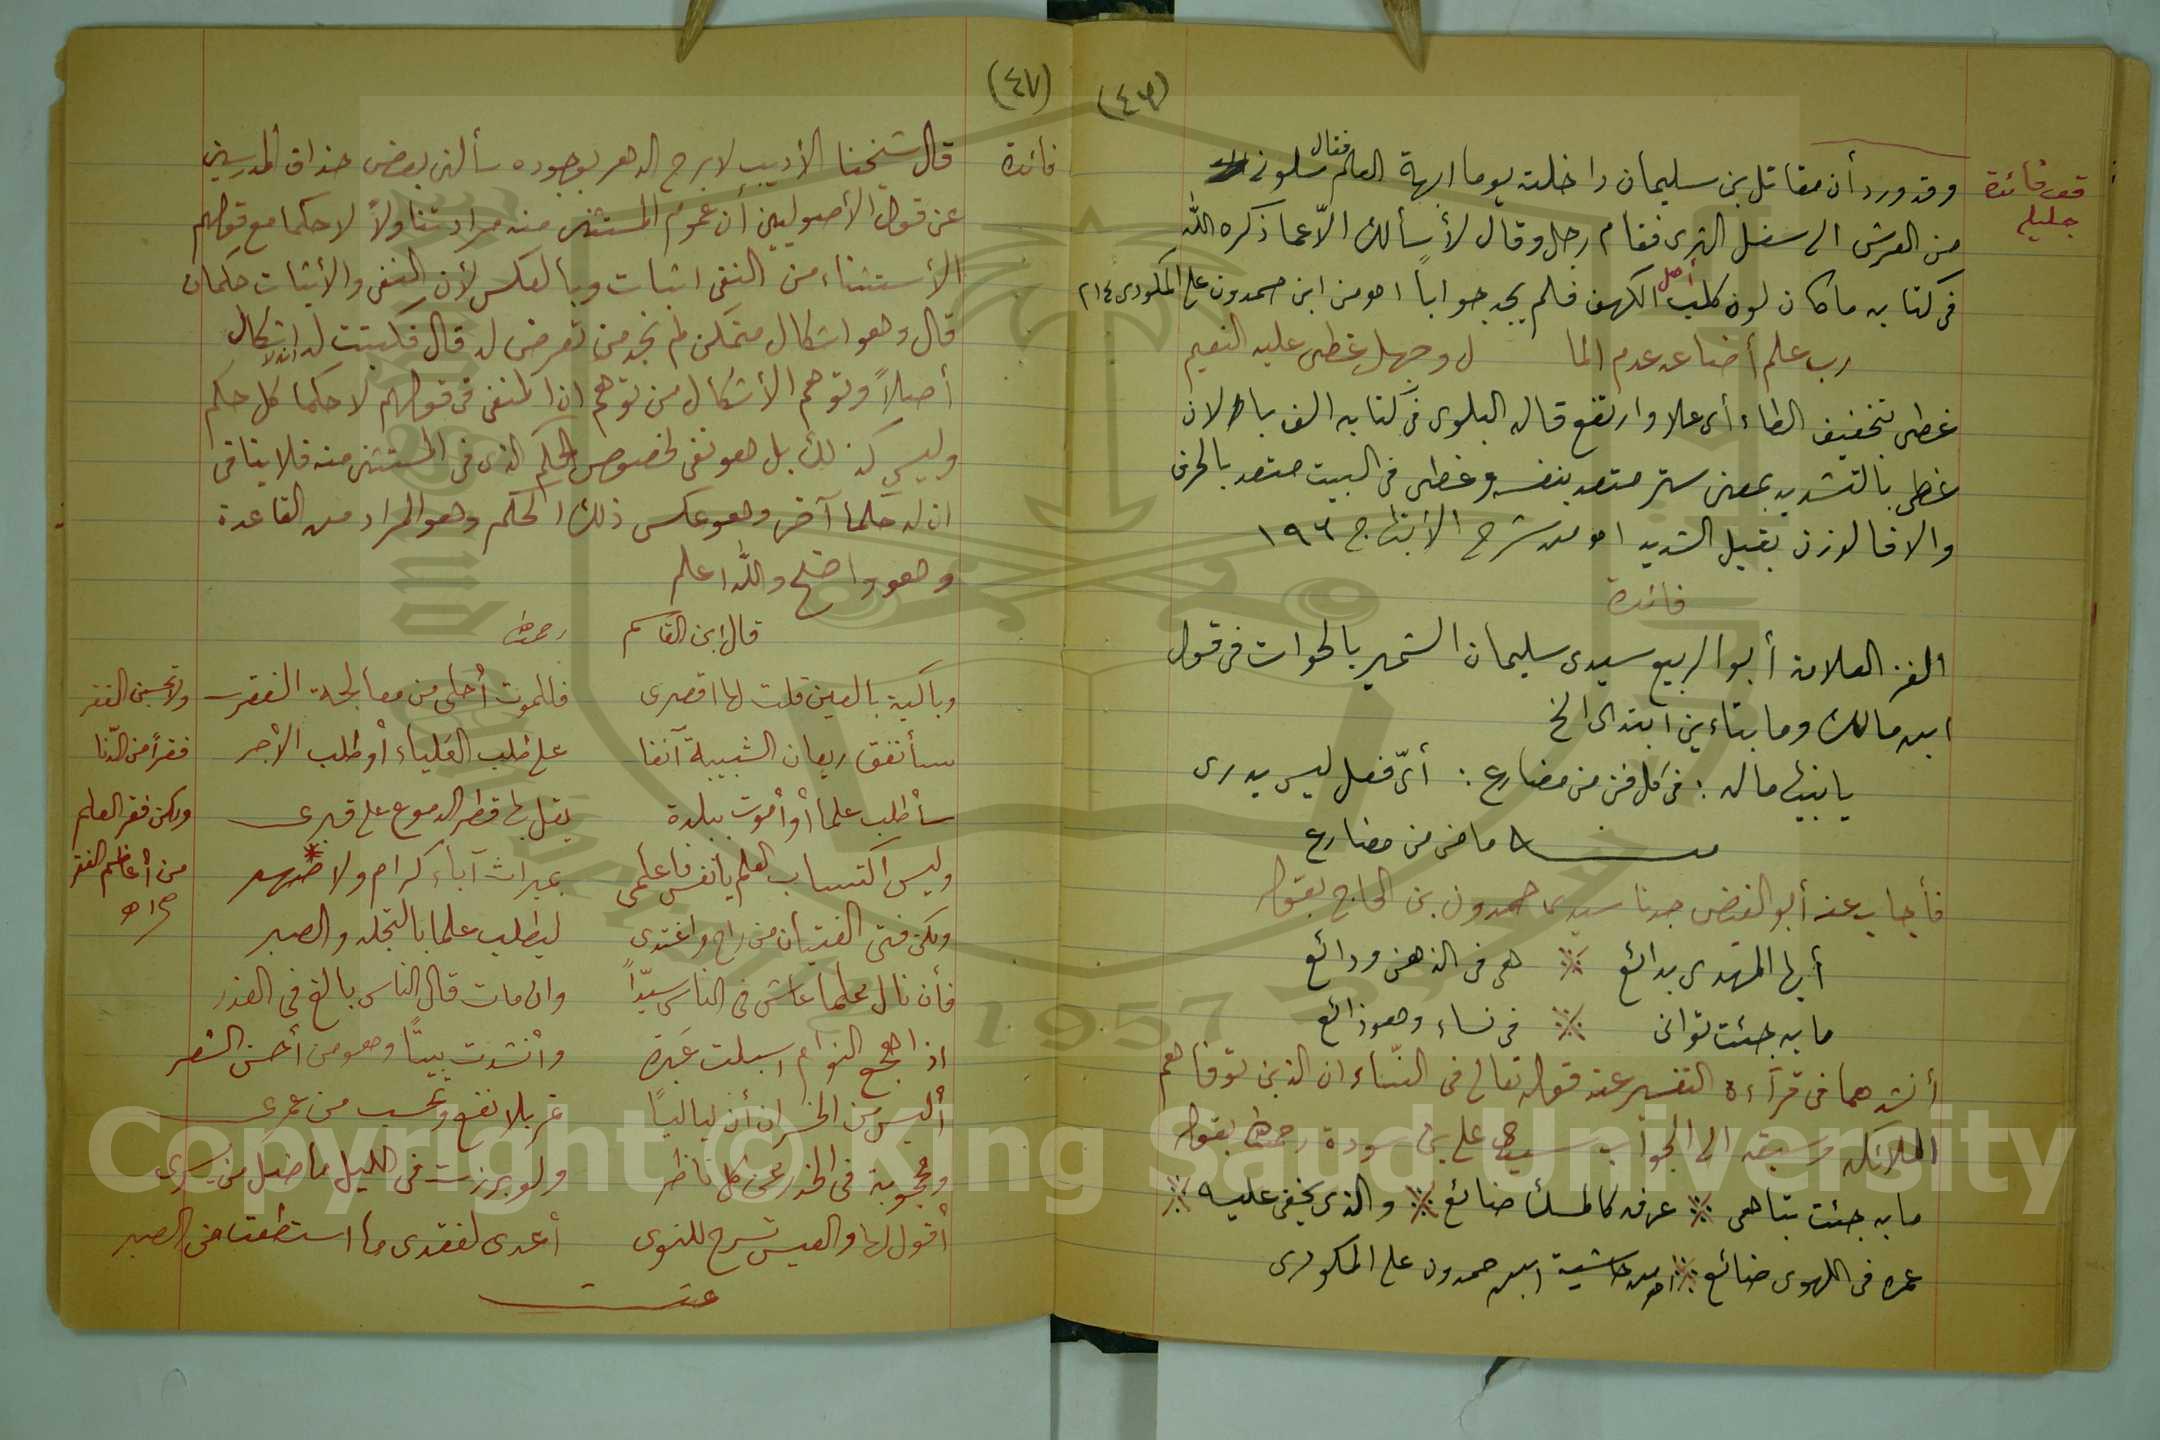 (٤٦)
قف فائدة
جليلة
وقد ورد أن مقاتل بن سليمان داخلته يوما ابهة العلم فقال سلونى
من العرش الى سفل الثرى فقام رجل وقال لا أسألك الا عما ذكره الله
فى كتابه ماكان لون كلب أهل الكهف فلم يجد جوابا اهـ من ابن حمدون على المكودى ٢١٤
رب علم أضاعه عدم الما ل وجهل غطى عليه النعيم
غطى بتخفيف الطاء أى علا وارتفع قاله البلوى فى كتابه الف با لان
غطى بالتشديد بمعنى ستر متعد بنفسه وغطى فى البيت متعد بالحرف
والا فالوزن يقبل التشديد اهـ من شرح ١٩٦
فائدة
الغز العلامة أبو الربيع سيدى سليمان الشهير بالحوات فى قول
ابن مالك وما بتاءين ابتدى الخ
يا نبيها ماله : فى كل فن من مضارع : أىّ فعل ليس يدرى
ماض من مضارع
فأجاب عنه أبو الفيض جدنا سيدى حمدون بن الحاج بقوله
أيها المهدى بدائع ※ هى فى الذهن ودائع
ما به جئت توانى ※ فى نساء وهو ذائع
أنشدهما فى قرآءة التفسير عند قوله تعالى فى النساء ان الذين توفاهم
الملائكة وسبقه الى الجواب سيدى على بن سودة رحمه الله بقوله
ما به جئت بتاهى ※ عرفه كالمسك ضائع ※ والذى يخفى عليه ※
عمره فى اللهو ضائع ※ اهـ من حاشية ابن حمدون على المكودى
(٤٧)
فائدة
قال شيخنا الأديب لا برح الدهر بوجوده سألنى بعض حذاق المدرسين
عن قول الأصوليين أن عموم المستثنى منه مراد تناولاً لا حكما مع قولهم
الأستثناء من النفى اثبات وبالعكس لأن النفى والأثبات حكمان
قال وهو اشكال متمكن لم نجد من تعرض له قال فكتبت له انه لا اشكال
أصلاً وتوهم الأشكال من توهم ان المنفى فى قولهم لا حكما كل حكم
وليس كذلك بل هو نفى لخصوص الحكم الذى فى المستثنى منه فلا ينافى
ان له حكما آخر وهو عكس ذلك الحكم وهو المراد من القاعدة
وهو واضح والله اعلم
قال ابن القاسم رحمه الله
وباكية بالعين قلت لها اقصرى فللموت أحلى من معالجة الفقر
سأنفق ريعان الشبيبة آنفا على طلب العلياء أو طلب الأجر
سأطلب علما أو أموت ببلدة يقل بها قطر الدموع على قبرى
وليس اكتساب العلم يا نفس فاعلمى بميراث آباء كرام ولا صهر*
ولكن فتى الفتيان من راح واغتدى ليطلب علما بالتجلد والصبر
فأن نال علما عاش فى الناس سيّداً وان مات قال الناس بالغ فى العذر
اذا هجع النوام اسبلت عبرة وأنشدت بيتاً وهو من أحسن الشعر
أليس من الخسران أن لياليا تمر بلا نفع وتحسب من عمرى
ومحجوبة فى الخدر عن كل ناظر ولو برزت فى الليل ما ضل من يسرى
أقول لها والعيس تسرج للنوى أعدى لفقدى ما استطعت من الصبر
تمت
ولا تحسبن الفقر
فقراً من الدّنا
ولكن فقر العلم
من أعاظم الفقر
صح اهـ
1957
Copyright © King Saud University